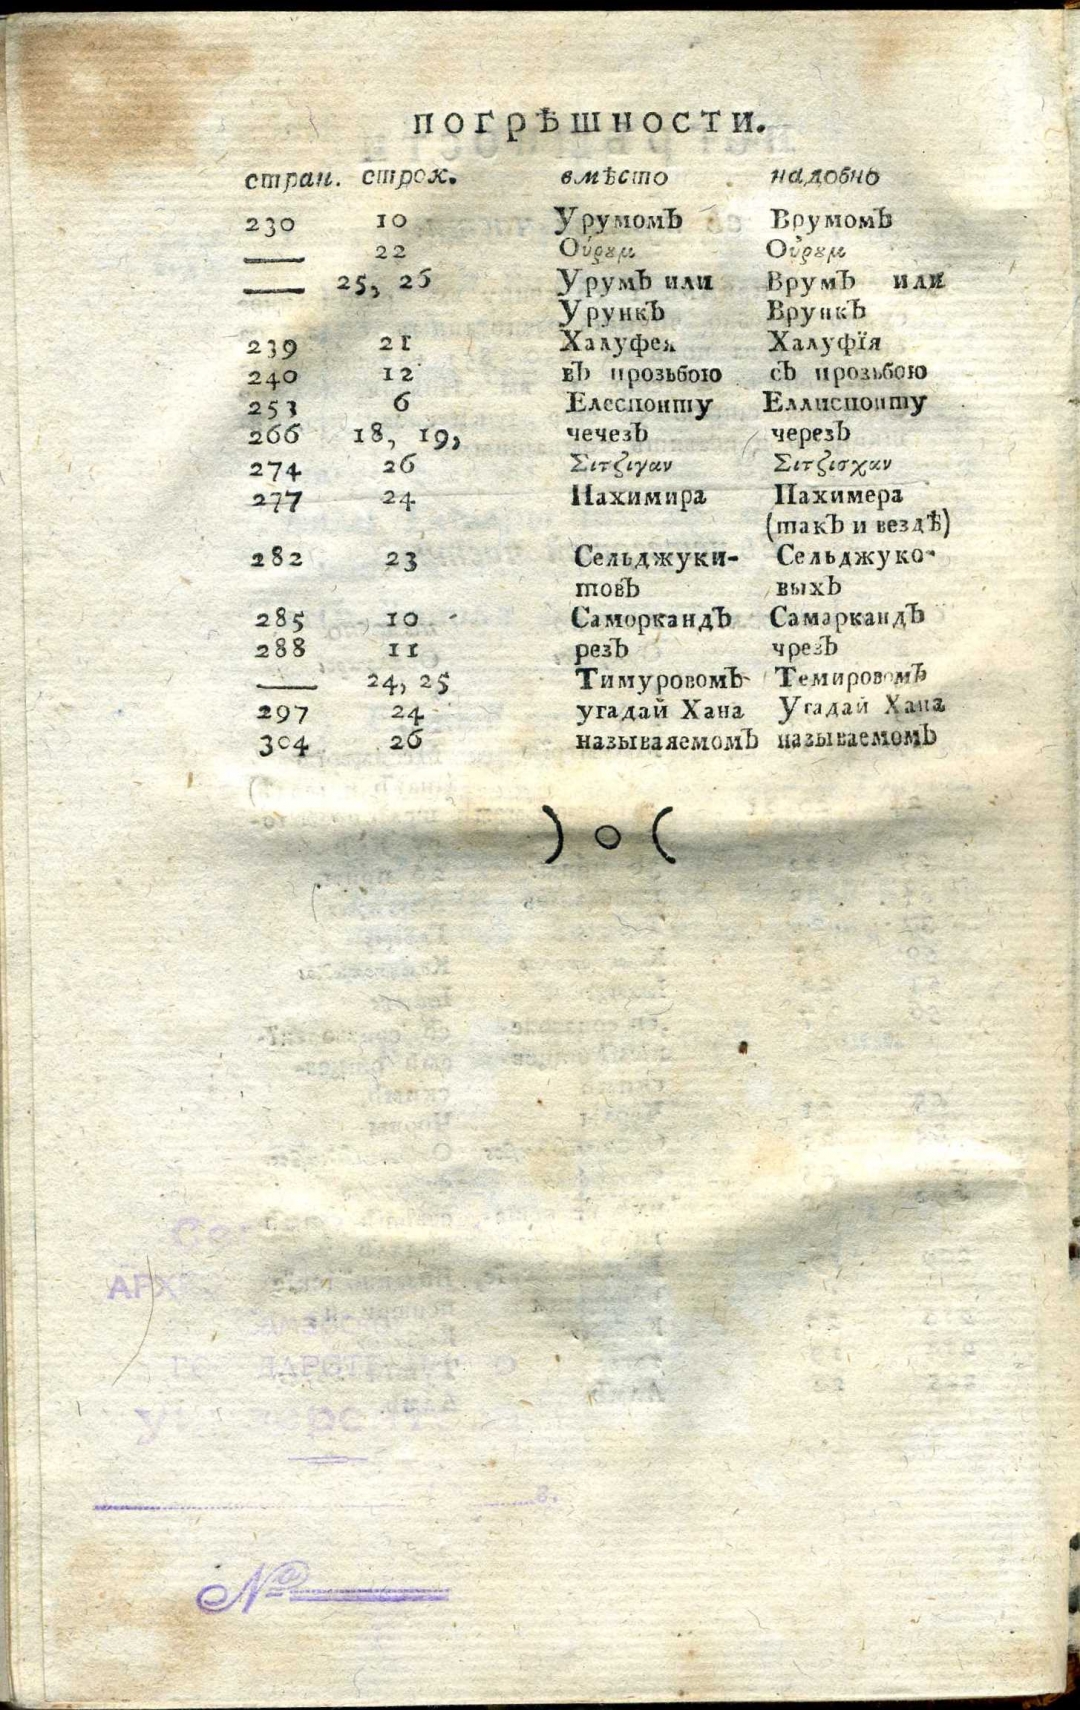 ПОГРѢШНОСТИ.
стран. строк. вмѣсто надобно
230 10 Урумомъ Врумомъ
— 22 Οὐρȣμ Οὐρȣμ
— 25, 26 Урумъ или Врумъ или
Урункъ Врункъ
239 21 Халуфея Халуфїя
240 12 въ прозьбою съ прозьбою
253 6 Елеспонту Еллиспонту
266 18, 19, чечезъ черезъ
274 26 Σιτζιγαν Σιτζισχαν
277 24 Нахимира Пахимера
(такъ и вездѣ)
282 23 Сельджуки- Сельджуко-
товъ выхъ
285 10 Саморкандъ Самаркандъ
288 11 резъ чрезъ
— 24, 25 Тимуровомъ Темировомъ
297 24 угадай Хана Угадай Хана
304 26 называяемомъ называемомъ
) о (
№